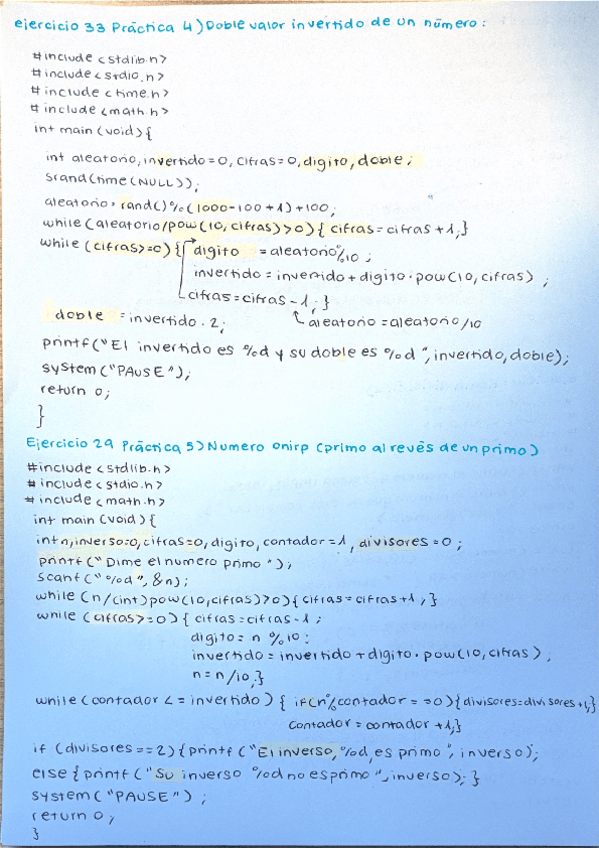 ejercicio 33 Práctica 4) Doble valor invertido de un número:
#include <stdlib.h>
#include <stdio.h>
#include <time.h>
#include <math.h>
int main (void) {
int aleatorio, invertido=0, cifras=0, digito, doble;
srand(time(NULL));
aleatorio = rand()%(1000-100+1)+100;
while (aleatorio/pow(10, cifras)>0) { cifras = cifras +1;}
while (cifras>=0) { digito = aleatorio%10;
invertido = invertido + digito · pow(10, cifras) ;
cifras = cifras -1; }
doble = invertido · 2; aleatorio = aleatorio/10
printf("El invertido es %d y su doble es %d", invertido, doble);
system ("PAUSE");
return 0;
}
Ejercicio 29 Práctica 5) Numero onirp (primo al revés de un primo)
#include <stdlib.h>
#include <stdio.h>
#include <math.h>
int main (void) {
int n, inverso=0, cifras=0, digito, contador=1, divisores=0;
printf("Dime el numero primo");
scanf("%d", &n);
while (n/(int)pow(10, cifras)>0) { cifras = cifras +1; }
while (cifras>=0) { cifras = cifras -1;
digito = n %10:
invertido = invertido + digito · pow(10, cifras) ;
n = n/10; }
while (contador <= invertido) { if(n%contador ==0){divisores=divisores+1;}
contador = contador +1;}
if (divisores==2){printf ("El inverso, %d, es primo", inverso);
else {printf ("Su inverso %d no es primo", inverso); }
system ("PAUSE") ;
return 0;
}